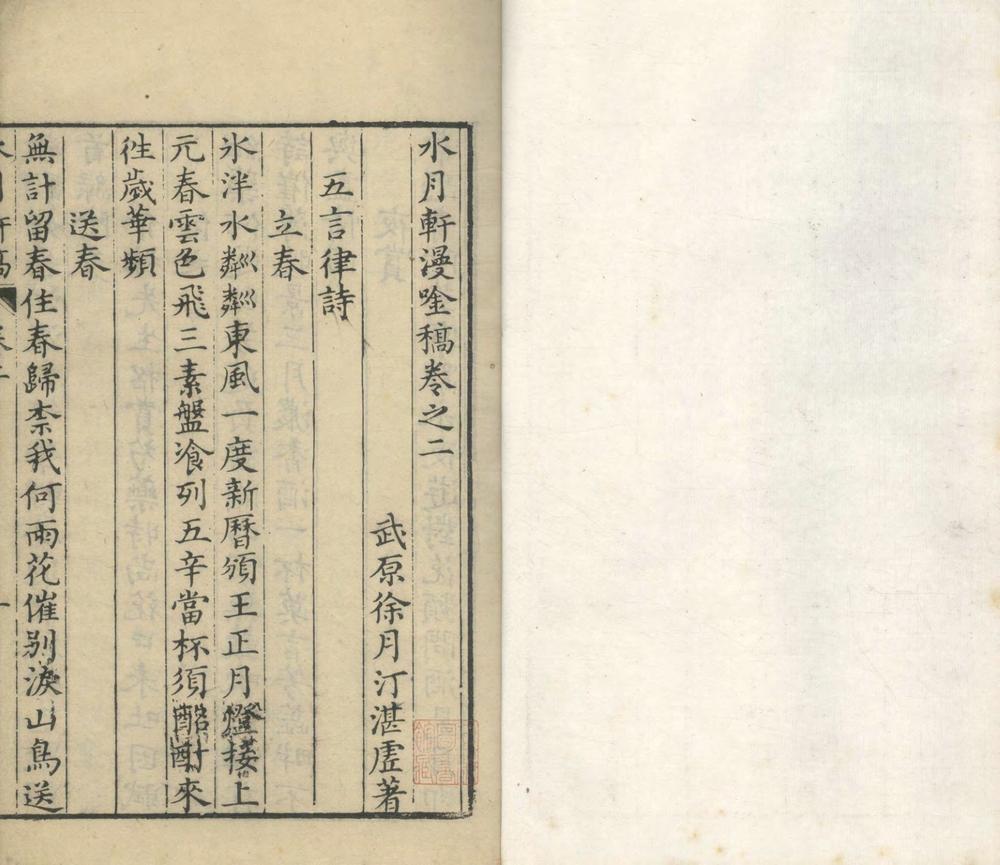 水月軒漫唫稿卷之二
武原徐月汀湛虛著
五言律詩
立春
氷泮水粼粼東風一度新曆頒王正月燈接上
元春雲色飛三素盤飡列五辛當杯須酩酊來
徃歲華頻
送春
無計留春住春歸柰我何雨花催别淚山鳥送